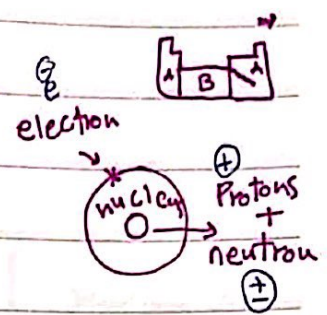 A B A
⊖
e
electron
nucleus
⊕
Protons
+
neutron
±